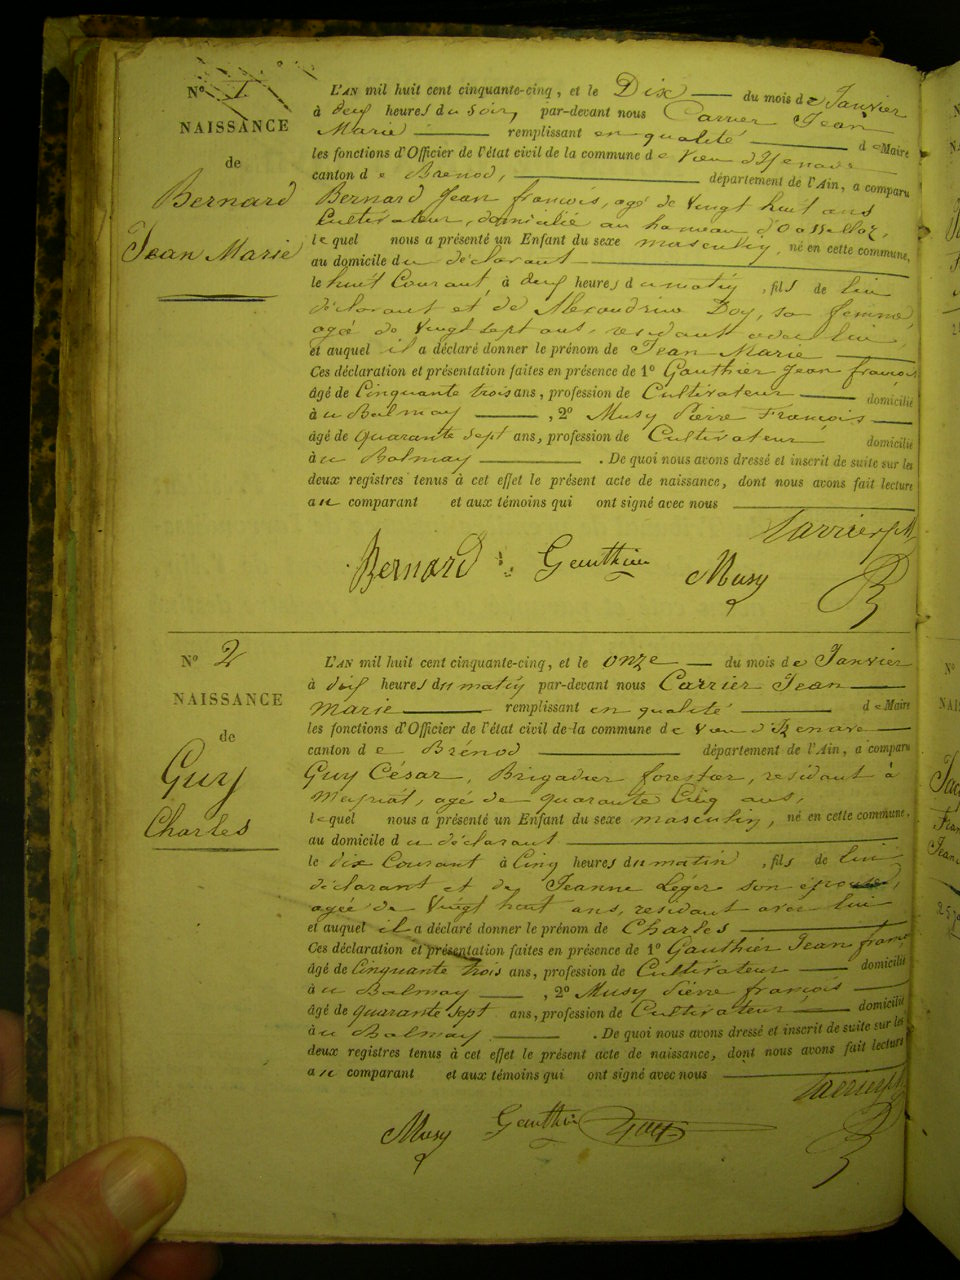 N° 1
NAISSANCE
de
Bernard
Jean Marie
L'AN mil huit cent cinquante-cinq, et le Dix du mois de Janvier
à deux heures du Soir, par-devant nous Carrier Jean
Marie remplissant en qualité de Maire
les fonctions d'Officier de l'état civil de la commune de Vieu d'Izenave
canton de Brénod, département de l'Ain, a comparu
Bernard Jean françois, agé de Vingt huit ans
Cultivateur, domicilié au hameau d'
lequel nous a présenté un Enfant du sexe masculin, né en cette commune,
au domicile du déclarant
le huit Courant, à deux heures du matin, fils de lui
déclarant et de Alexandrine Doy, sa femme,
agée de Vingt sept ans, residant avec lui,
et auquel il a déclaré donner le prénom de Jean Marie
Ces déclaration et présentation faites en présence de 1° Gauthier Jean françois
âgé de Cinquante trois ans, profession de Cultivateur domicilié
à u Balmay, 2° Musy Pierre François
âgé de quarante Sept ans, profession de Cultivateur domicilié
à u Balmay. De quoi nous avons dressé et inscrit de suite sur les
deux registres tenus à cet effet le présent acte de naissance, dont nous avons fait lecture
au comparant et aux témoins qui ont signé avec nous
Carrier JM
Bernard Gauthier Musy
N° 2
NAISSANCE
de
Guy
Charles
L'AN mil huit cent cinquante-cinq, et le onze du mois de Janvier
à dix heures du matin par-devant nous Carrier Jean
Marie remplissant en qualité de Maire
les fonctions d'Officier de l'état civil de la commune de Vieu d'Izenave
canton de Brénod département de l'Ain, a comparu
Guy César, Brigadier forestier, residant à
Maſriat, agé de quarante Cinq ans,
lequel nous a présenté un Enfant du sexe masculin, né en cette commune,
au domicile du déclarant
le dix Courant à Cinq heures du matin, fils de lui
déclarant et de Jeanne Léger son épouse,
agée de Vingt huit ans, residant avec lui
et auquel il a déclaré donner le prénom de Charles
Ces déclaration et présentation faites en présence de 1° Gauthier Jean franc
âgé de Cinquante trois ans, profession de Cultivateur domicilié
à u Balmay, 2° Musy Pierre françois
âgé de quarante Sept ans, profession de Cultivateur domicilié
à u Balmay. De quoi nous avons dressé et inscrit de suite sur les
deux registres tenus à cet effet le présent acte de naissance, dont nous avons fait lecture
au comparant et aux témoins qui ont signé avec nous
Carrier JM
Musy Gauthier Guy